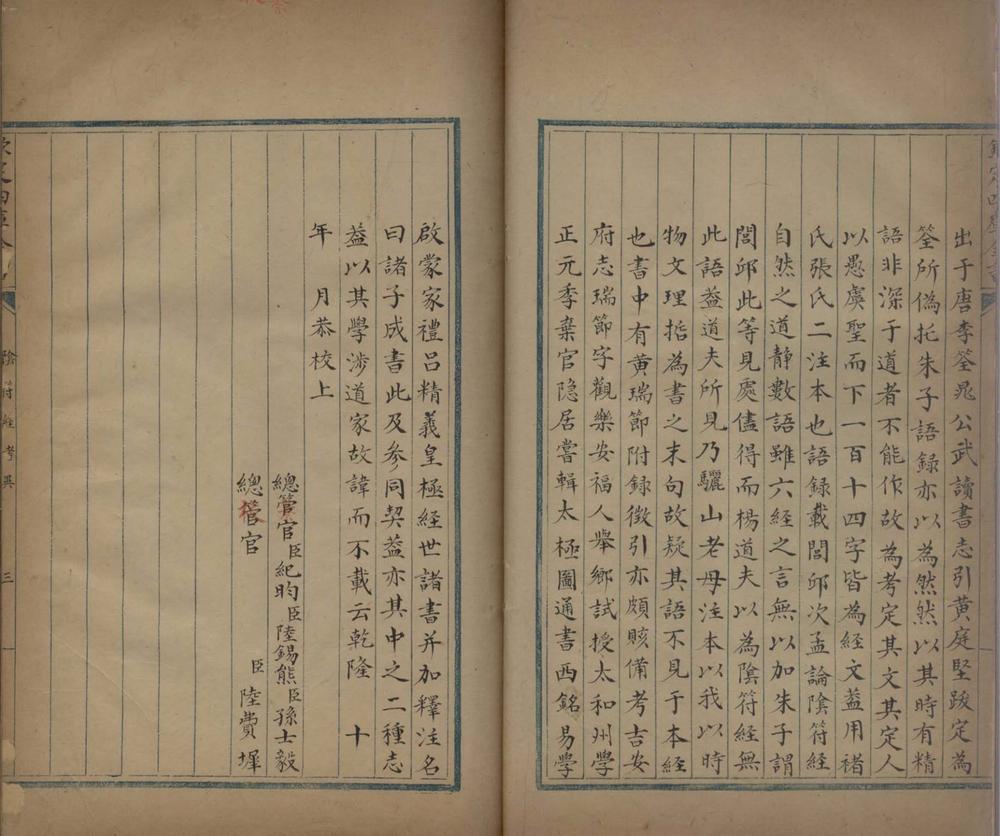 欽定四庫全書
出于唐李筌晁公武讀書志引黄庭堅跋定為
筌所偽托朱子語録亦以為然然以其時有精
語非深于道者不能作故為考定其文其定人
以愚虞聖而下一百十四字皆為經文葢用褚
氏張氏二注本也語録載閭邱次孟論隂符經
自然之道静數語雖六經之言無以加朱子謂
閭邱此等見處儘得而楊道夫以為隂符經無
此語葢道夫所見乃驪山老母注本以我以時
物文理哲為書之末句故疑其語不見于本經
也書中有黄瑞節附録徴引亦頗賅備考吉安
府志瑞節字觀樂安福人舉鄉試授太和州學
正元季棄官隐居嘗輯太極圖通書西銘易學
啟蒙家禮吕精義皇極經世諸書并加釋注名
曰諸子成書此及参同契葢亦其中之二種志
葢以其學涉道家故諱而不載云乾隆 十
年 月恭校上
總管官臣紀昀臣陸錫熊臣孫士毅
總管官 臣陸費墀
欽定四庫全書
隂符經考異
三